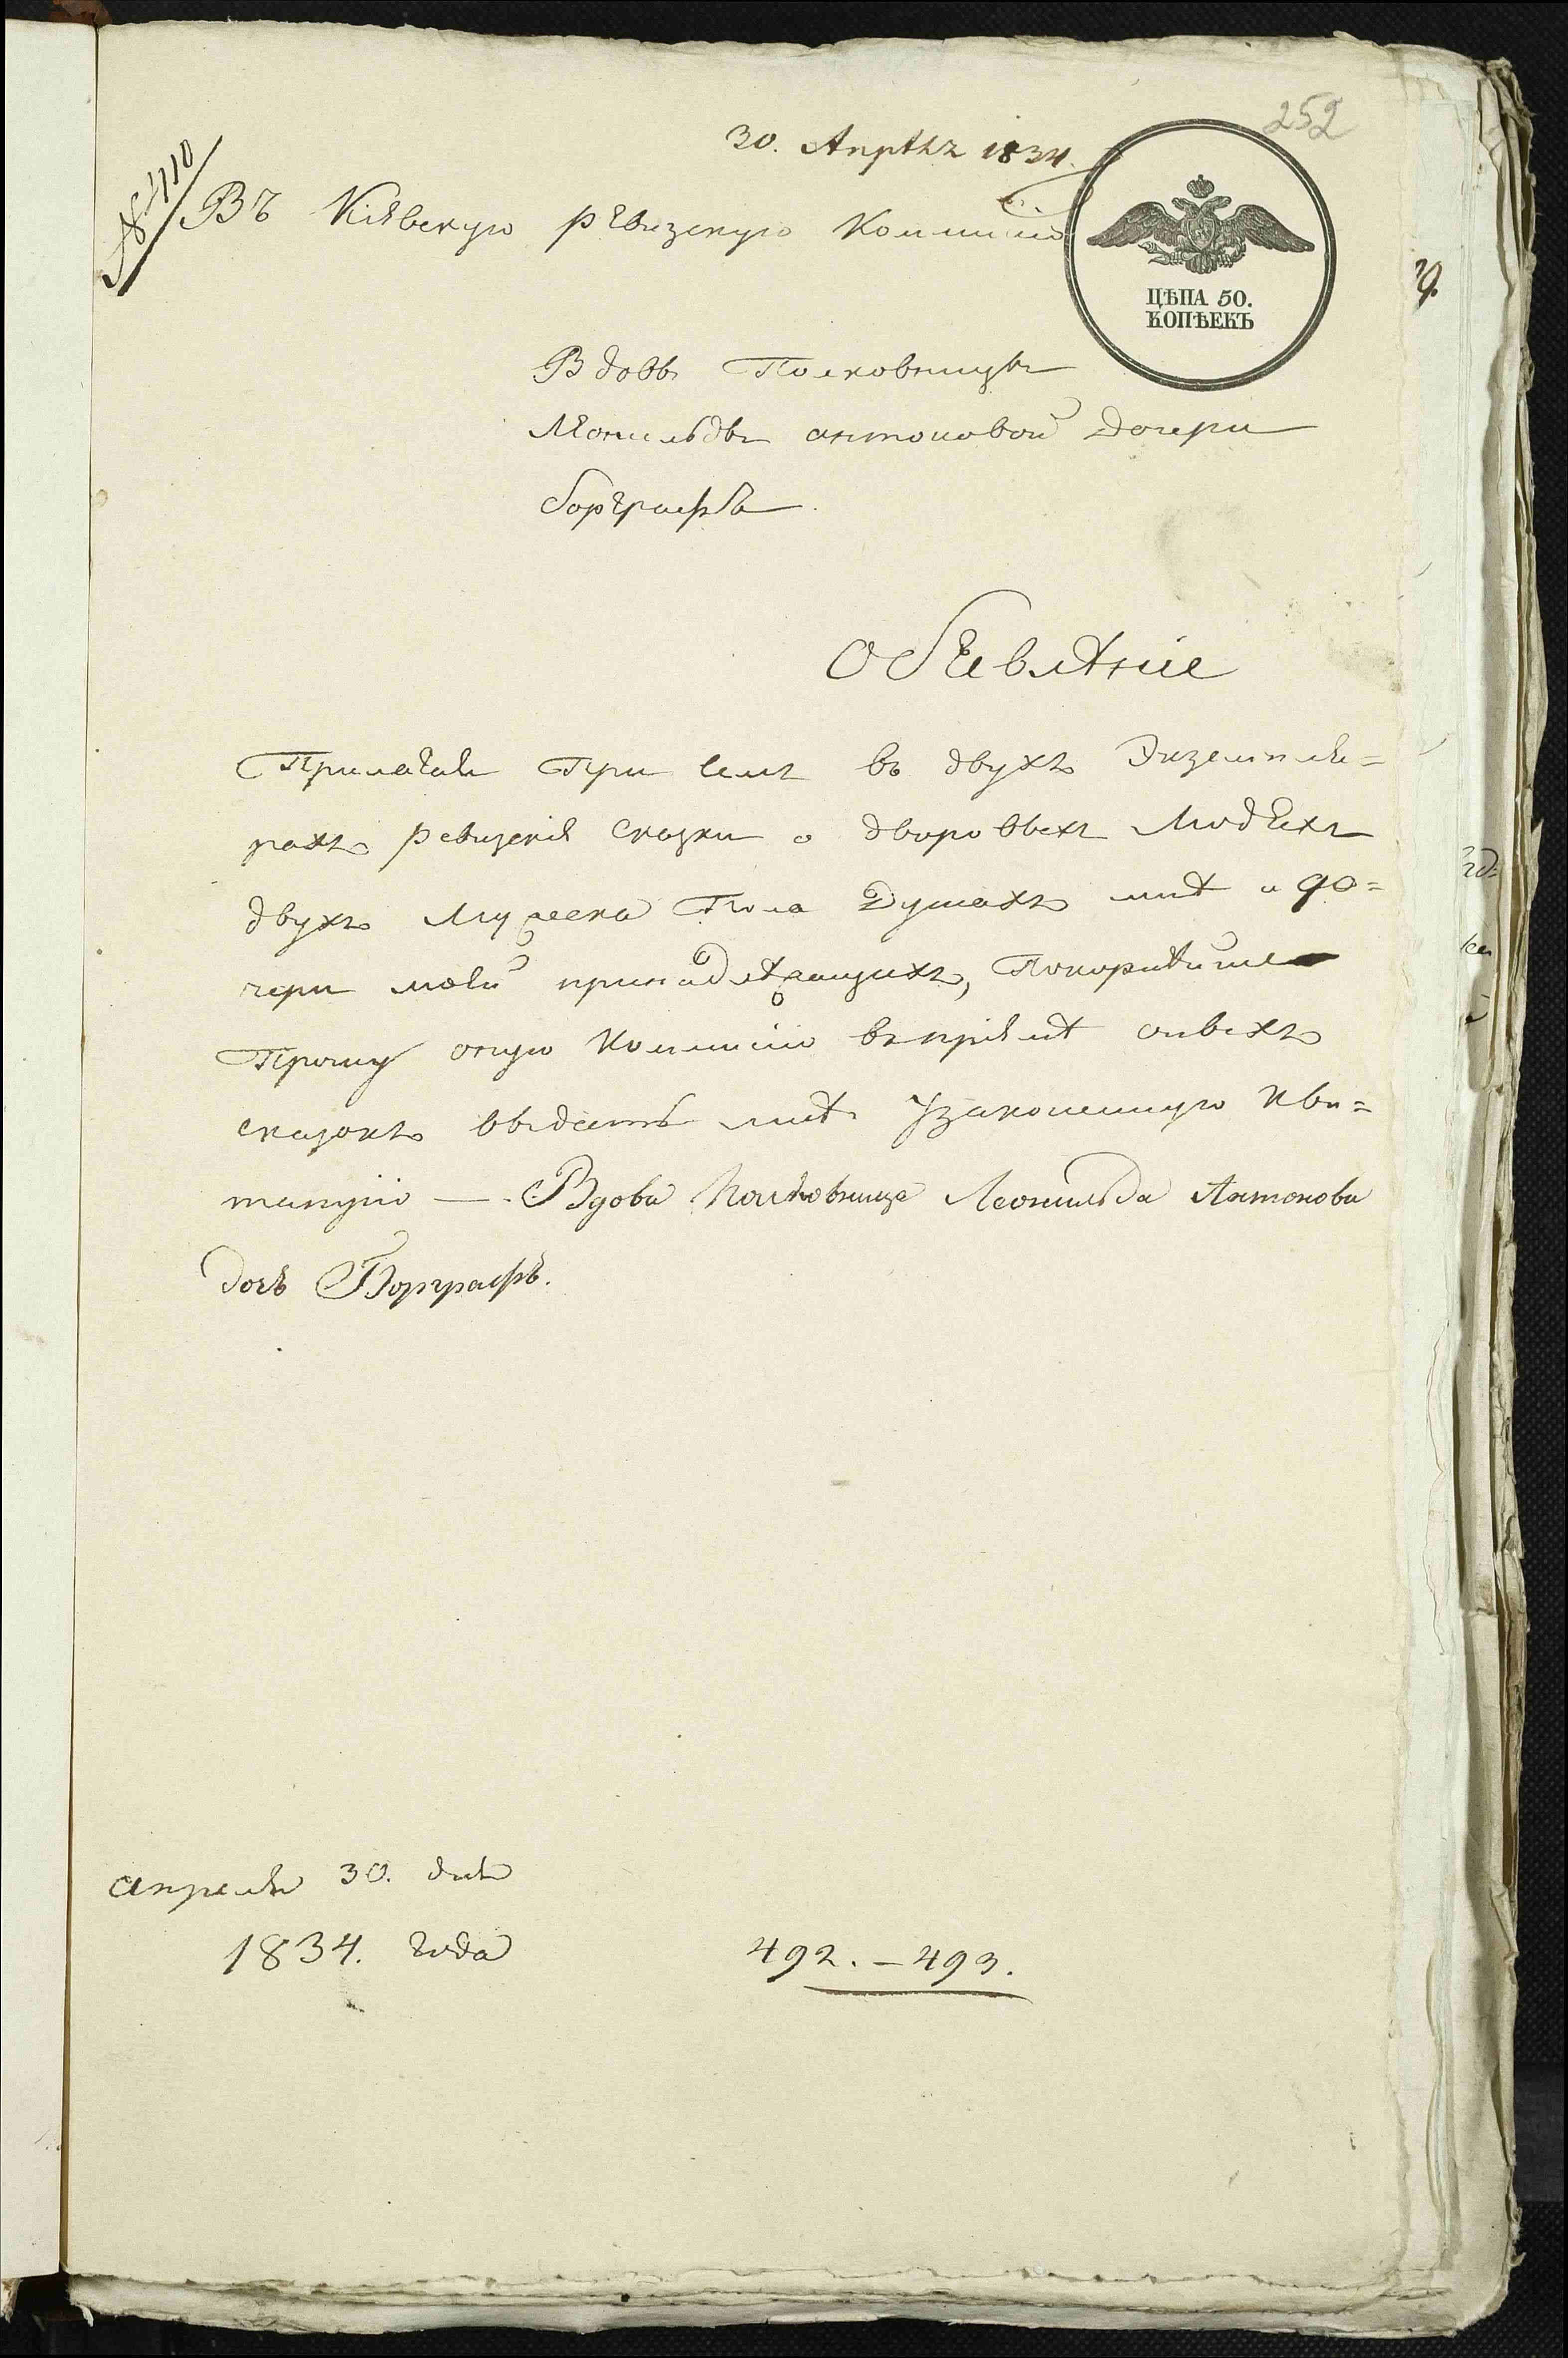 252
30. Апрѣлѧ 1834.
№ 4110
Въ Кіевскую ревизскую Коммисію
ЦѢНА 50.
КОПѢЕКЪ
Вдовы Полковницы
Леонильды антоновой дочери
борграфъ.
обьевленіе
Прилагая При семъ въ двухъ Экземпля=
рахъ ревизскія сказки о дворовыхъ Людяхъ
двухъ мужеска Пола Душахъ мнѣ и до=
чери моей принадлежащихъ, Покорнѣйше
Прошу оную Коммисію въ пріемѣ оныхъ
сказокъ выдать мнѣ Узаконенную Кви=
танцію —. Вдова Полковница Леонильда Антонова
дочь Борграфъ.
апреля 30. дня
1834. года
492. – 493.